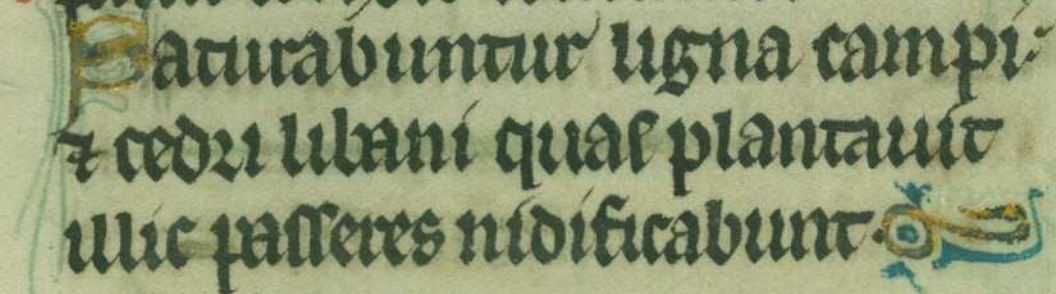 Saturabuntur ligna campi
⁊ cedri libani quas plantauit
illic passeres nidificabunt.